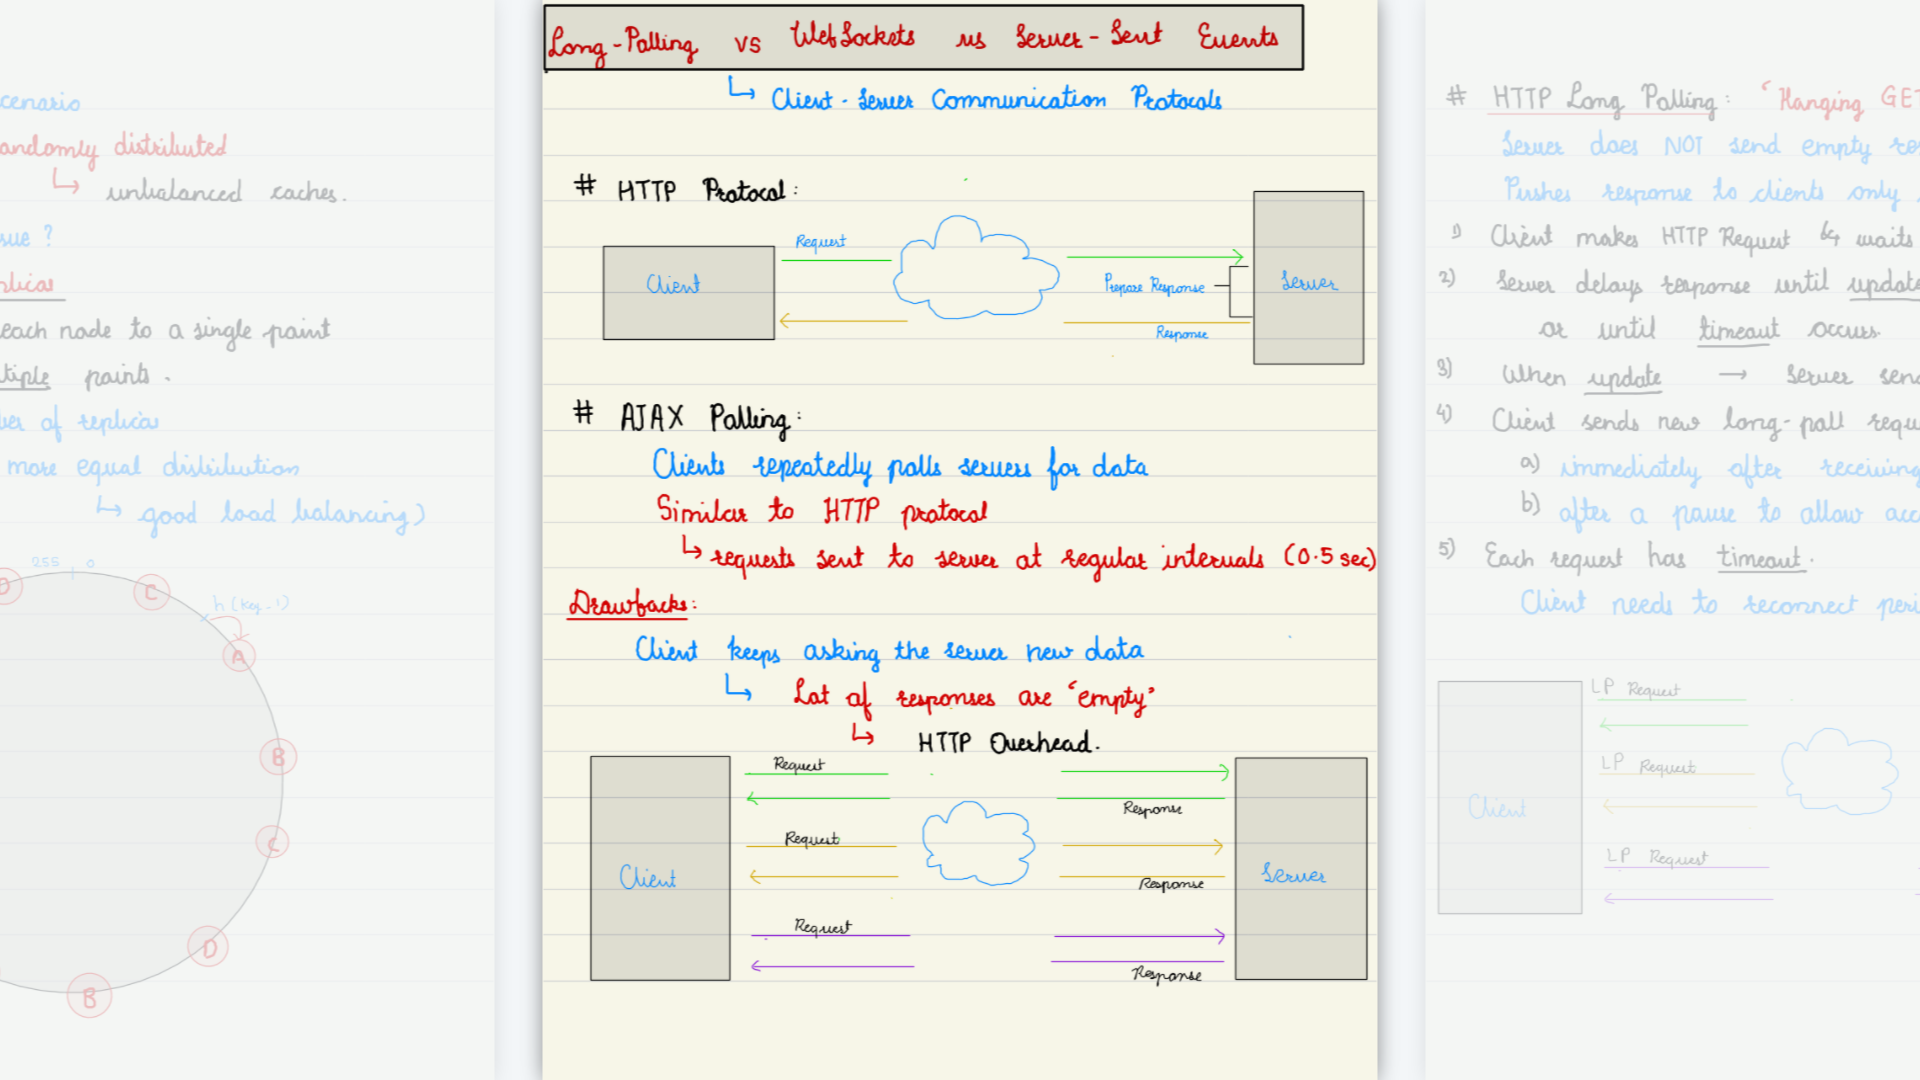 cenario
andomly distributed
↳ unbalanced caches.
sue ?
plicas
each node to a single point
tiple points.
ber of replicas
more equal distribution
↳ good load balancing)
255 0
h(key-1)
D
C
A
B
C
D
B
Long-Polling vs WebSockets vs Server-Sent Events
↳ Client-Server Communication Protocols
# HTTP Protocol:
Request
Client
Prepare Response
Server
Response
# AJAX Polling:
Clients repeatedly polls servers for data
Similar to HTTP protocol
↳ requests sent to server at regular intervals (0.5 sec)
Drawbacks:
Client keeps asking the server new data
↳ Lot of responses are 'empty'
↳ HTTP Overhead.
Request
Response
Request
Client
Server
Response
Request
Response
# HTTP Long Polling: "Hanging GET
Server does NOT send empty
Pushes response to clients only
1) Client makes HTTP Request & waits
2) Server delays response until update
or until timeout occurs.
3) When update → Server sen
4) Client sends new long-poll requ
a) immediately after receiving
b) after a pause to allow acc
5) Each request has timeout.
Client needs to reconnect peri
LP Request
LP Request
Client
LP Request